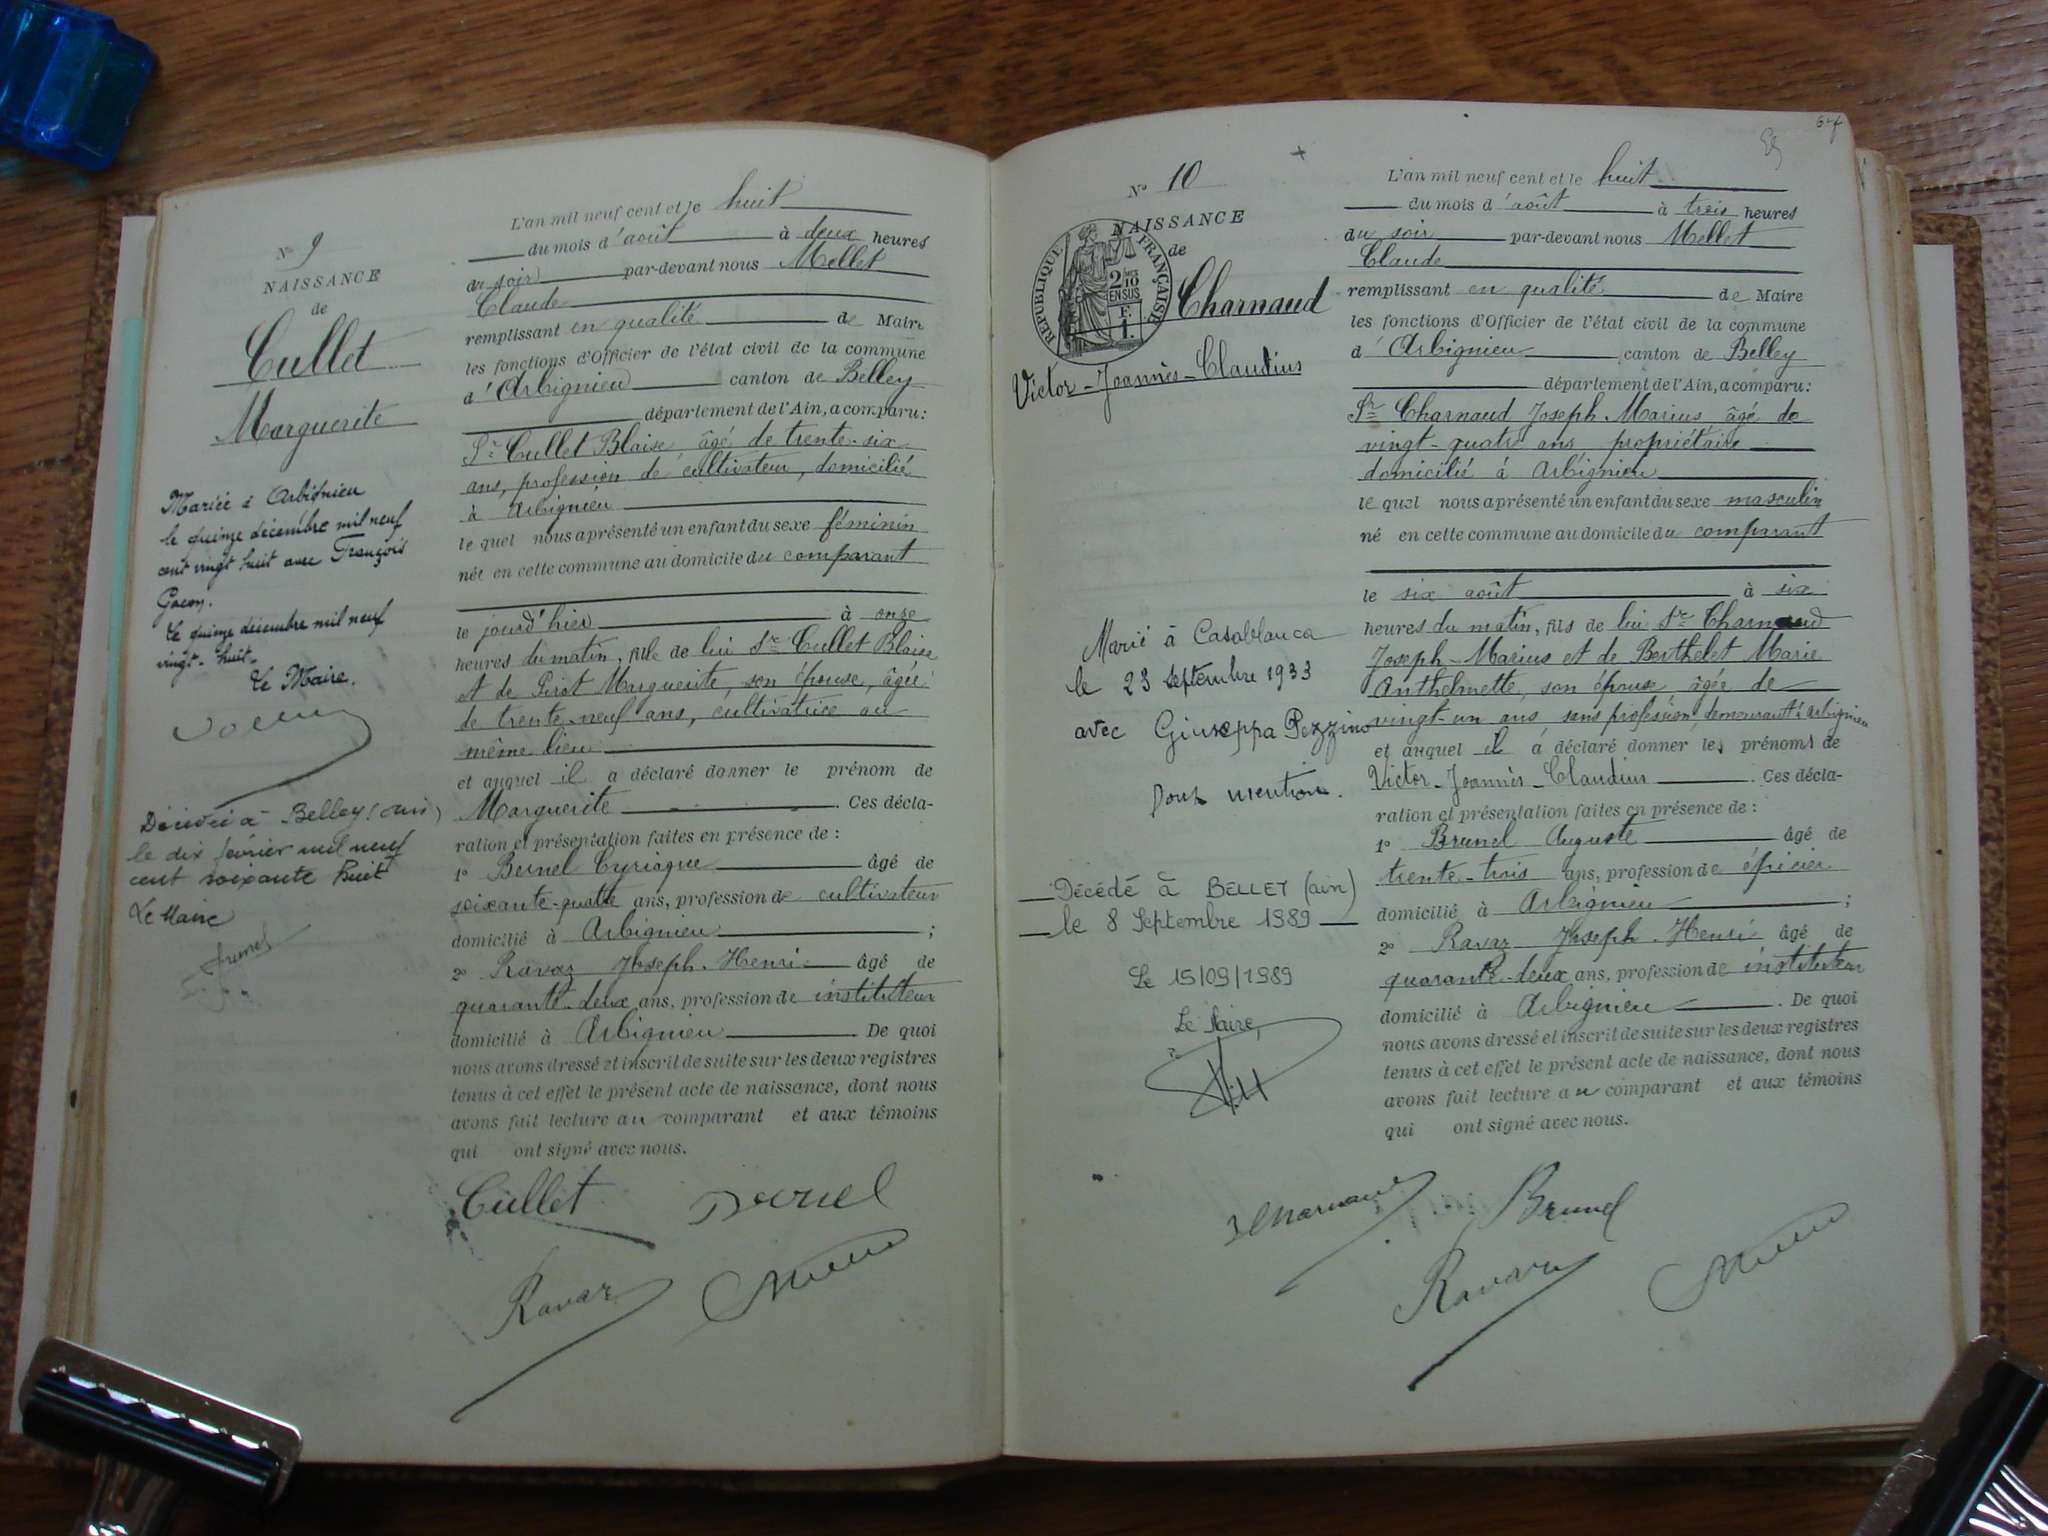 N° 9
NAISSANCE
de
Cullet
Marguerite
Mariée à Arbignieu
le quinze décembre mil neuf
cent vingt huit avec François
Gacon.
Le quinze décembre mil neuf
vingt-huit.
Le Maire.
Décédée à Belley (Ain)
le dix février mil neuf
cent soixante huit
Le Maire
L'an mil neuf cent et le huit
du mois d'août à deux heures
du soir par-devant nous Mellet
Claude
remplissant en qualité de Maire
les fonctions d'Officier de l'état civil de la commune
d'Arbignieu canton de Belley
département de l'Ain, a comparu:
Sr Cullet Blaise âgé de trente-six
ans, profession de cultivateur, domicilié
à Arbignieu
le quel nous a présenté un enfant du sexe féminin
née en cette commune au domicile du comparant
le jourd'hier à onze
heures du matin, fille de lui Sr Cullet Blaise
et de Pirot Marguerite, son épouse, âgée
de trente-neuf ans, cultivatrice au
même lieu
et auquel il a déclaré donner le prénom de
Marguerite. Ces décla-
ration et présentation faites en présence de :
1° Bernel Cyriaque âgé de
soixante-quatre ans, profession de cultivateur
domicilié à Arbignieu ;
2° Ravaz Joseph-Henri âgé de
quarante-deux ans, profession de instituteur
domicilié à Arbignieu. De quoi
nous avons dressé et inscrit de suite sur les deux registres
tenus à cet effet le présent acte de naissance, dont nous
avons fait lecture au comparant et aux témoins
qui ont signé avec nous.
Cullet Bernel
Ravaz
64
N° 10
NAISSANCE
de
RÉPUBLIQUE FRANÇAISE
2/10 EN SUS
F. 1.
Charnaud
Victor-Joannès-Claudius
Marié à Casablanca
le 23 septembre 1933
avec Giuseppa Pezzino
Pour mention.
Décédé à BELLEY (ain)
le 8 Septembre 1989
Le 15/09/1989
Le Maire,
L'an mil neuf cent et le huit
du mois d'août à trois heures
du soir par-devant nous Mellet
Claude
remplissant en qualité de Maire
les fonctions d'Officier de l'état civil de la commune
d'Arbignieu canton de Belley
département de l'Ain, a comparu:
Sr Charnaud Joseph-Marius âgé de
vingt-quatre ans propriétaire
domicilié à Arbignieu
le quel nous a présenté un enfant du sexe masculin
né en cette commune au domicile du comparant
le six août à six
heures du matin, fils de lui Sr Charnaud
Joseph-Marius et de Berthelet Marie
Anthelmette, son épouse âgée de
vingt-un ans sans profession, demeurant à Arbignieu
et auquel il a déclaré donner les prénoms de
Victor-Joannès-Claudius. Ces décla-
ration et présentation faites en présence de :
1° Brunel Auguste âgé de
trente-trois ans, profession de épicier
domicilié à Arbignieu ;
2° Ravaz Joseph-Henri âgé de
quarante-deux ans, profession de instituteur
domicilié à Arbignieu. De quoi
nous avons dressé et inscrit de suite sur les deux registres
tenus à cet effet le présent acte de naissance, dont nous
avons fait lecture au comparant et aux témoins
qui ont signé avec nous.
Charnaud Brunel
Ravaz